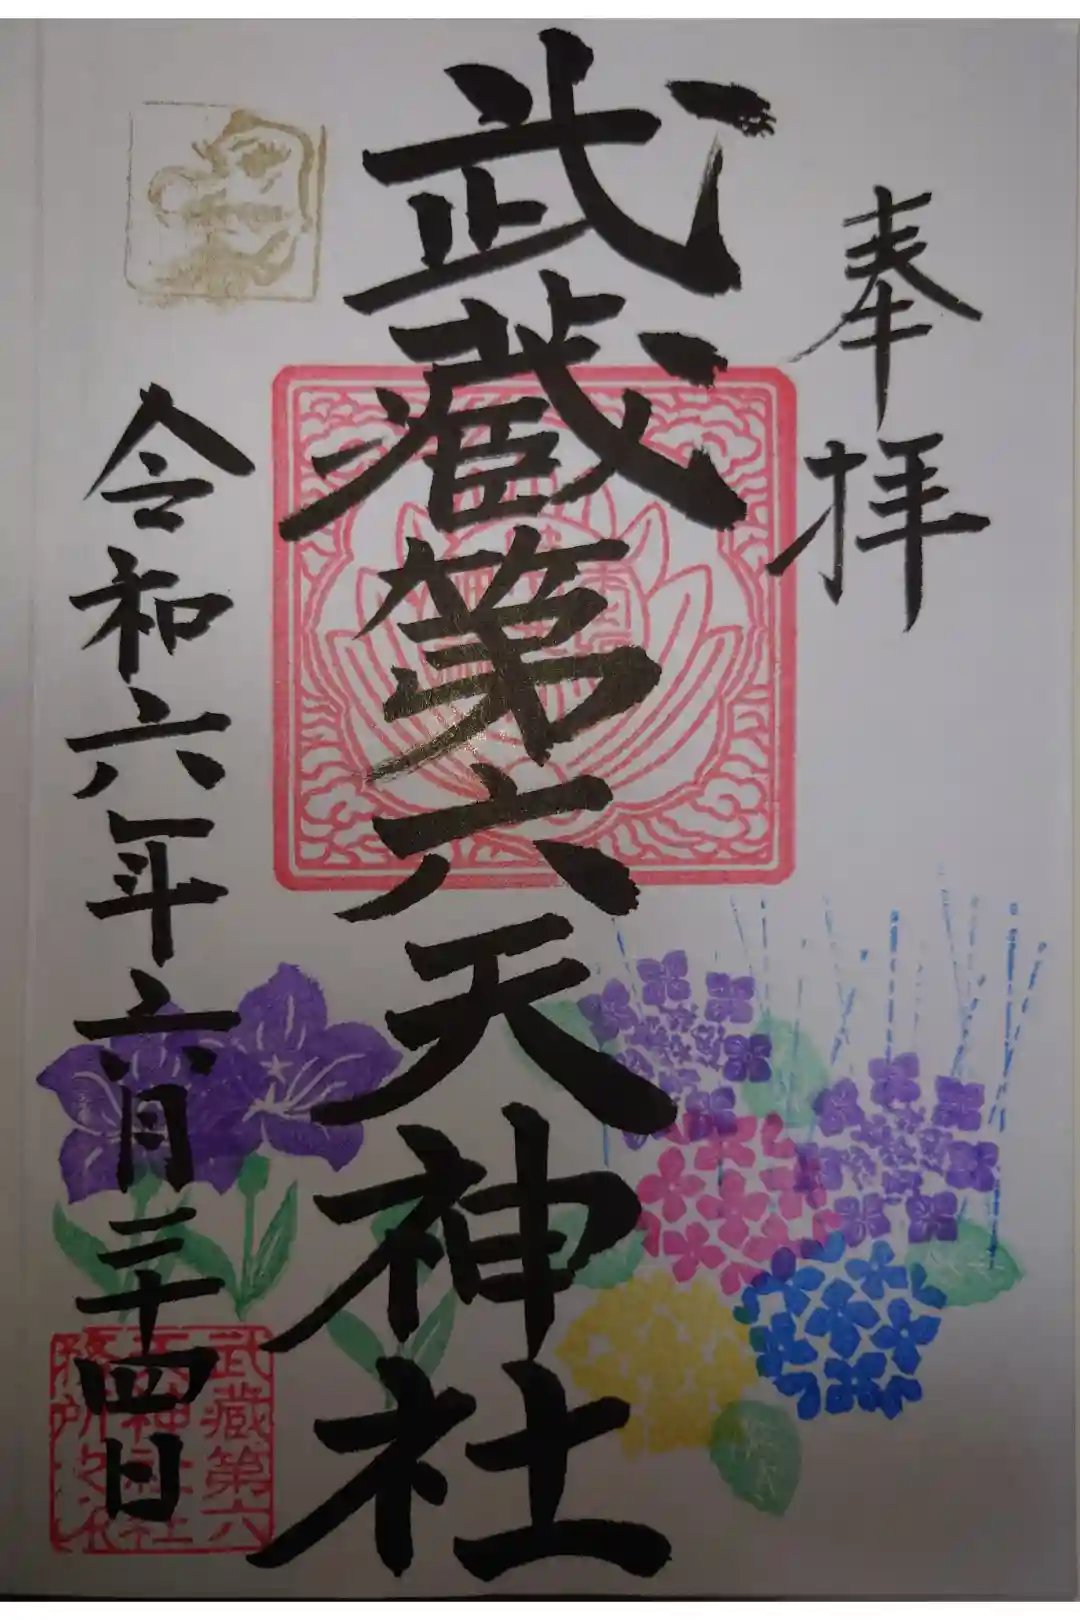 奉拝
武蔵第六天神社
令和六年六月二十四日
武蔵第六
天神社社
務所之印